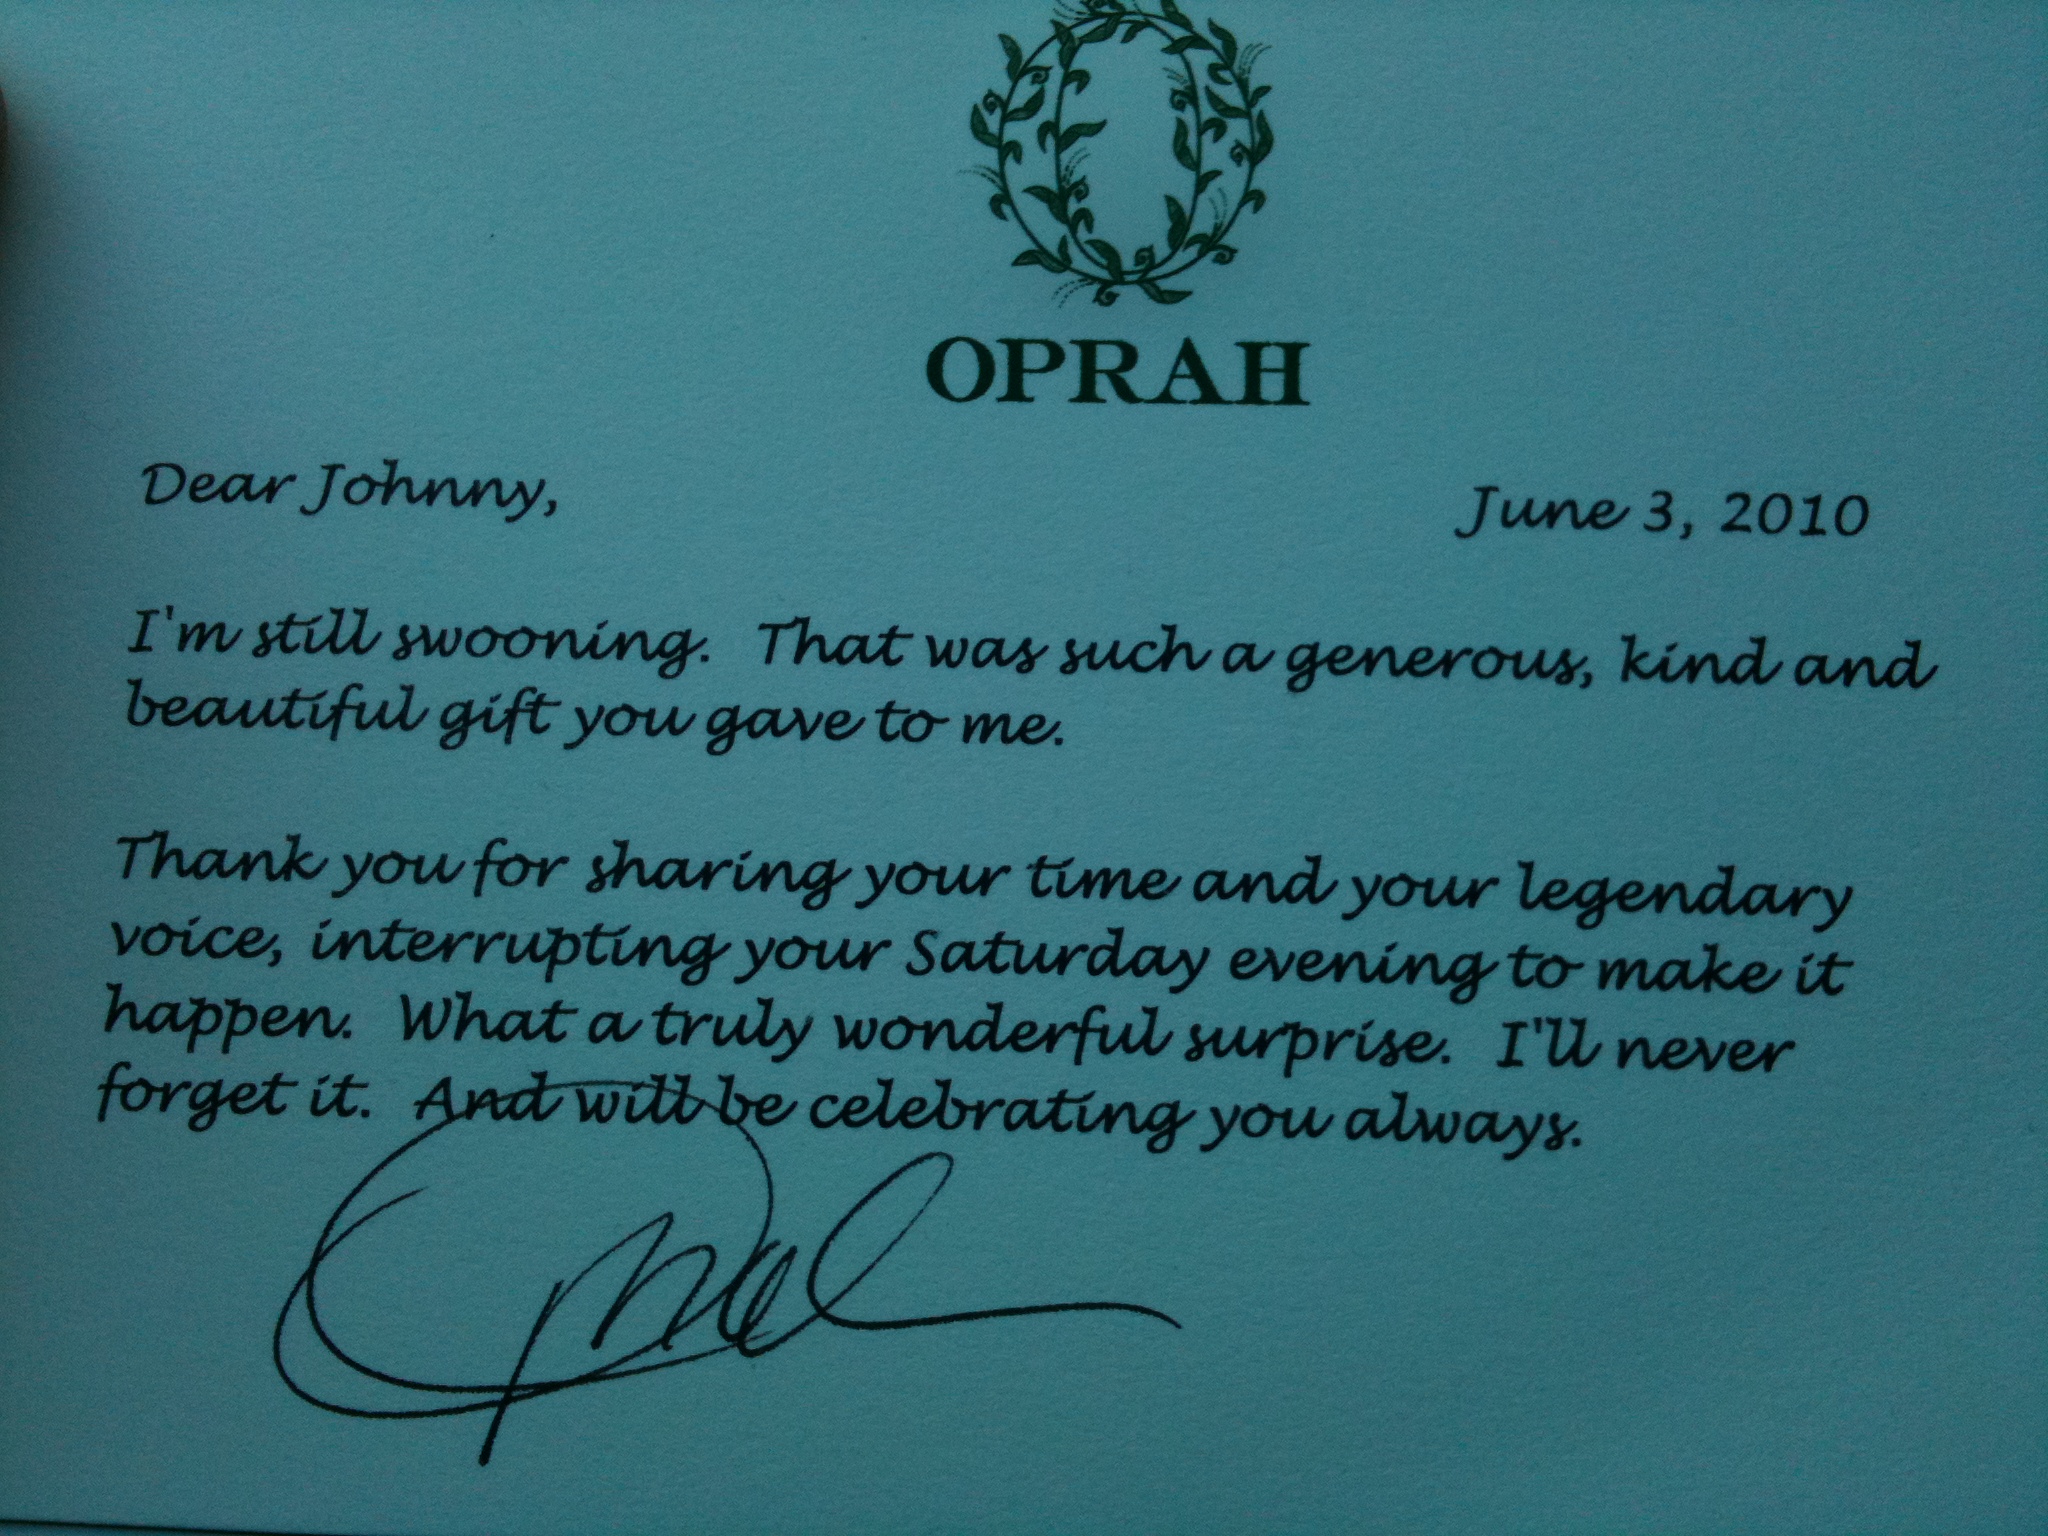 OPRAH
Dear Johnny, June 3, 2010
I'm still swooning. That was such a generous, kind and
beautiful gift you gave to me.
Thank you for sharing your time and your legendary
voice, interrupting your Saturday evening to make it
happen. What a truly wonderful surprise. I'll never
forget it. And will be celebrating you always.